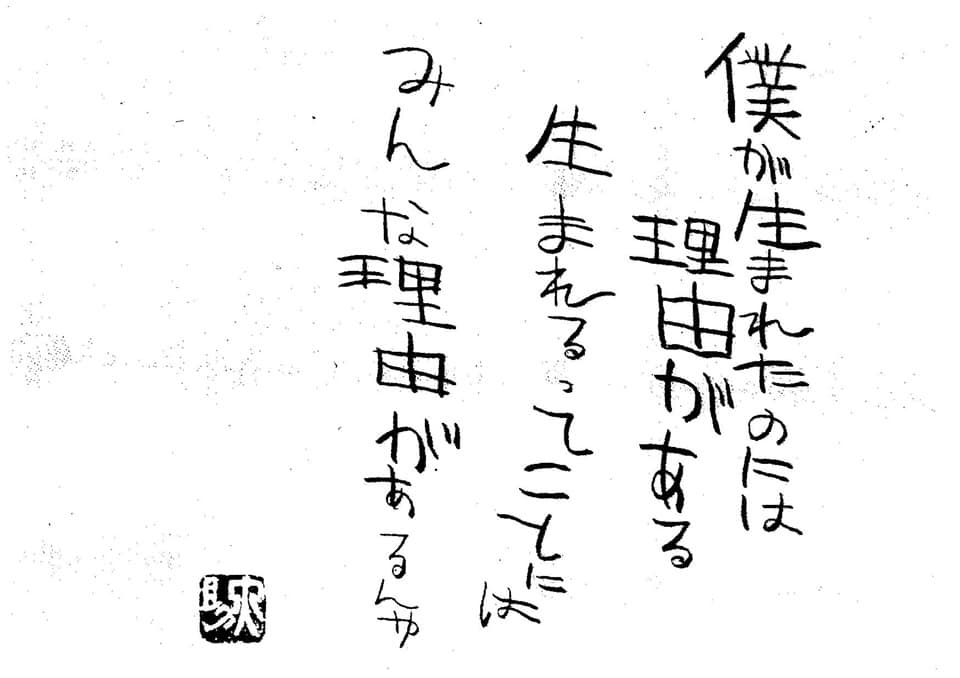 僕が生まれたのには
理由がある
生まれるってことには
みんな理由があるんや